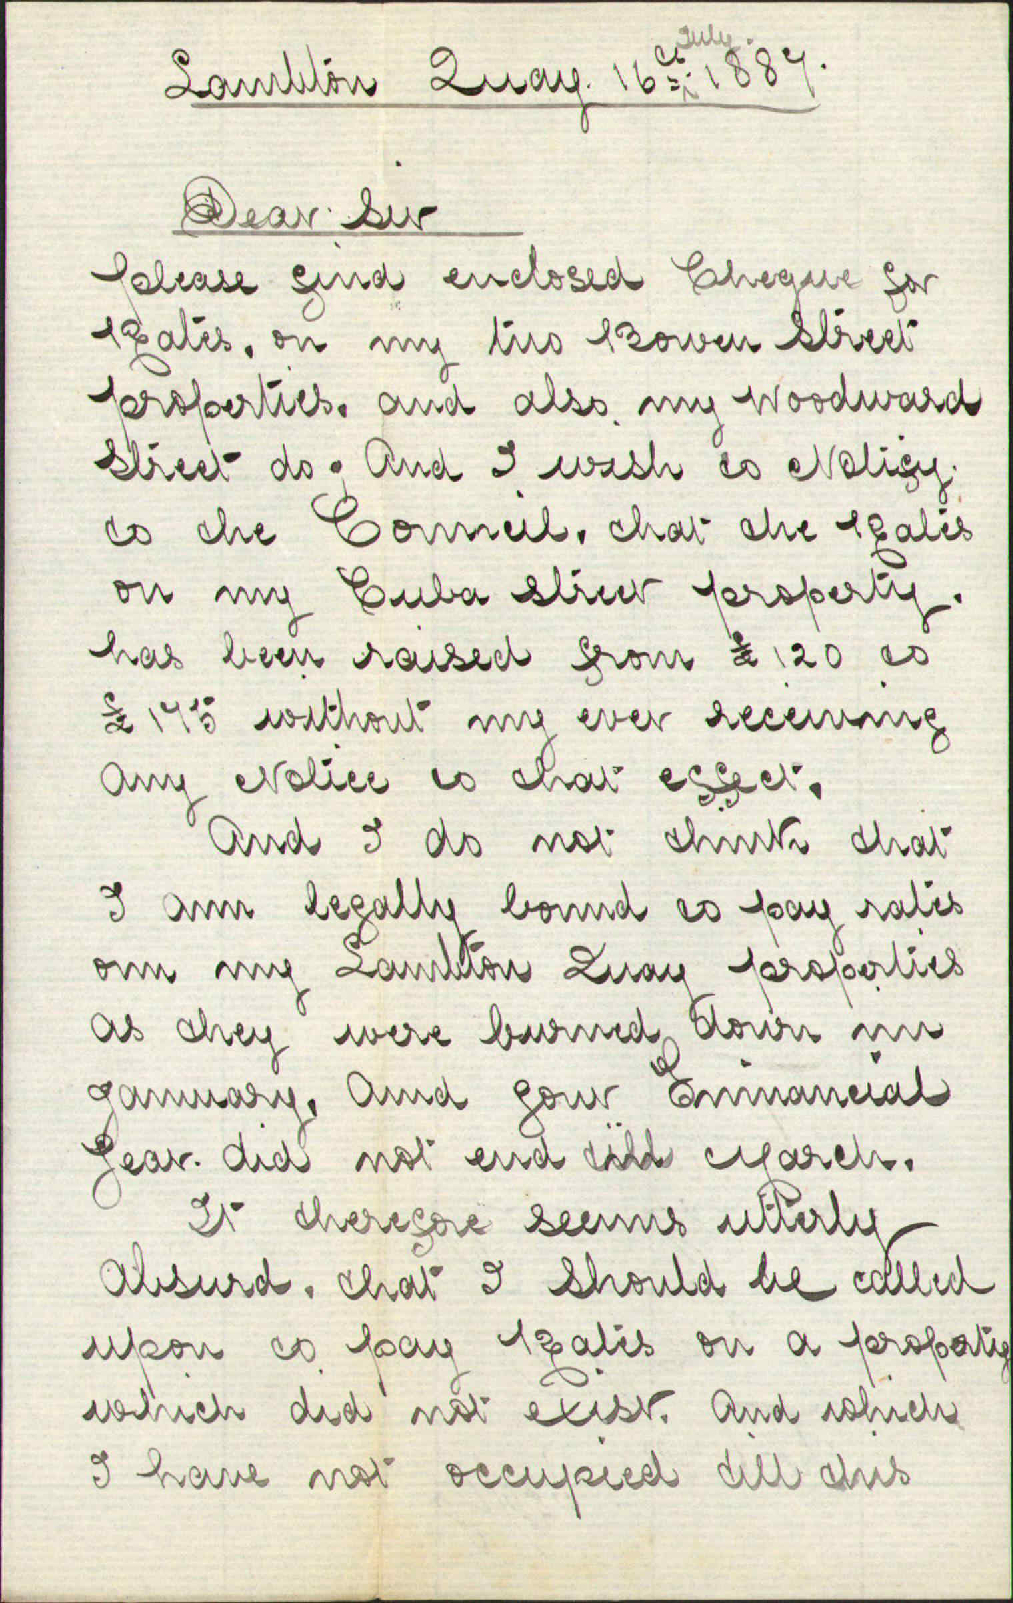 Lambton Quay. 16th July. 1887.
Dear Sir
please find enclosed Cheque for
Rates, on my two Bowen Street
properties. and also my Woodward
Street do. And I wish to Notify
to the Council, that the Rates
on my Cuba Street property.
has been raised from £120 to
£175 without my ever receiving
any Notice to that effect.
And I do not think that
I am legally bound to pay rates
on my Lambton Quay properties
as they were burned down in
January, and your Finnancial
Year did not end till March.
It therefore seems utterly
absurd, that I should be called
upon to pay Rates on a property
which did not exist. And which
I have not occupied till this